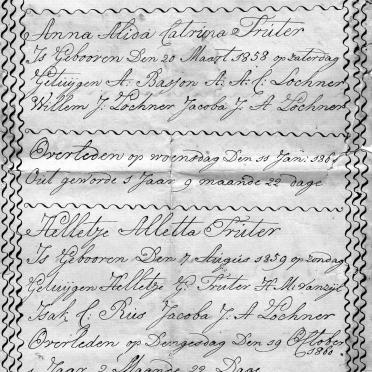 Anna Alida Catrina Trüter
Is Gebooren Den 20 Maart 1858 op zaterdag
Getuijgen A. Basson A. A. C. Lochner
Willem J. Lochner Jacoba J. A Lochner
Overleden op woensdag Den 11 Jan: 186
Out geworde 1 Jaar 9 maande 22 dage
Helletze Alletta Trüter
Is Gebooren Den 7 Augus 1859 op zondag
Getuijgen Helletze G. Trüter H. M. Vanzijl
Isak C. Rus Jacoba J. A Lochner
Overleden op Dengesdag Den 29 October
1860
1 Jaar 2 Maande 22 Dage